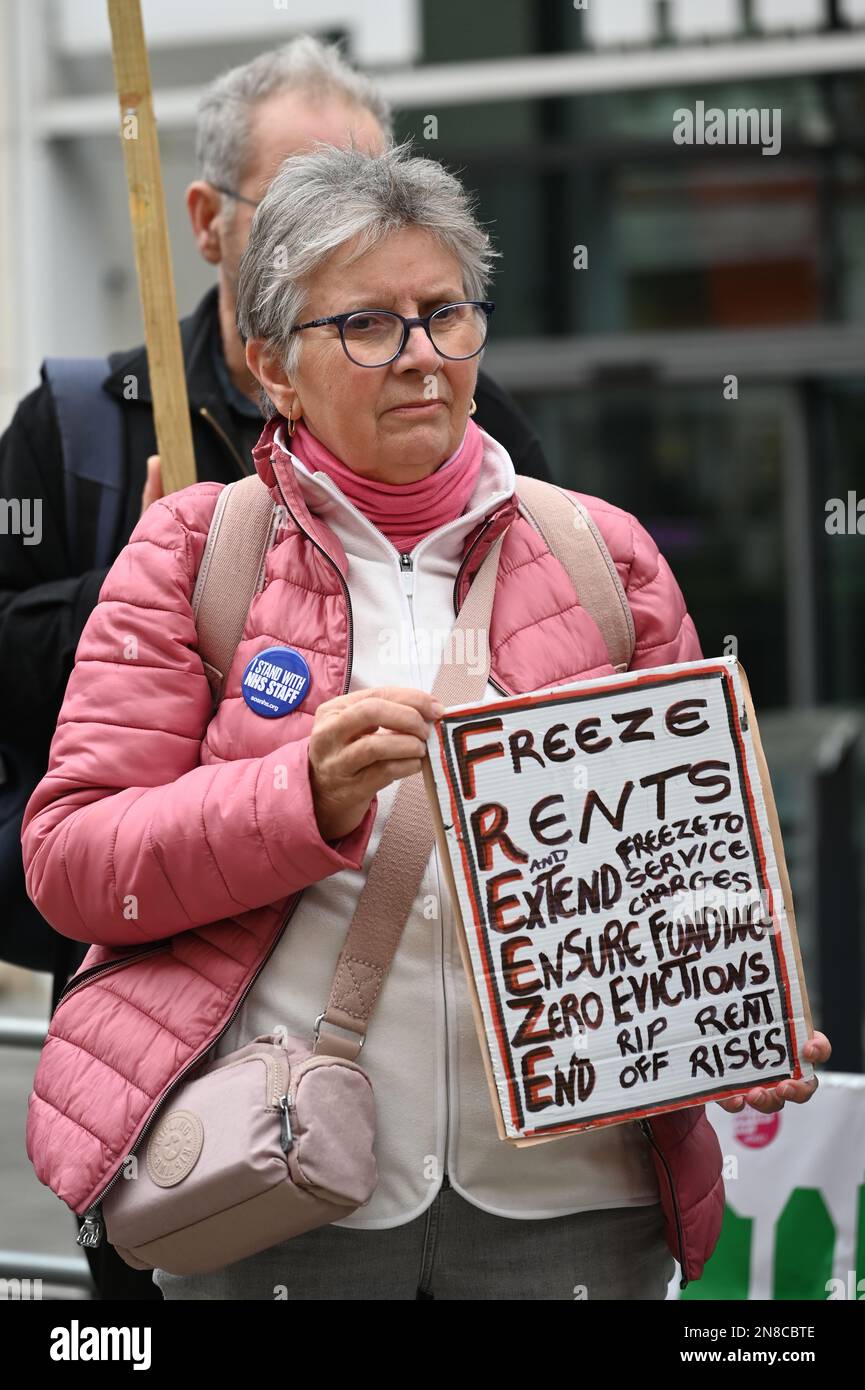 I STAND WITH
NHS STAFF
sosnhs.org
FREEZE
RENTS
AND
EXTEND FREEZE TO
SERVICE
CHARGES
ENSURE FUNDING
ZERO EVICTIONS
END RIP RENT
OFF RISES
KIPLING
alamy
Image ID: 2N8CBTE
www.alamy.com